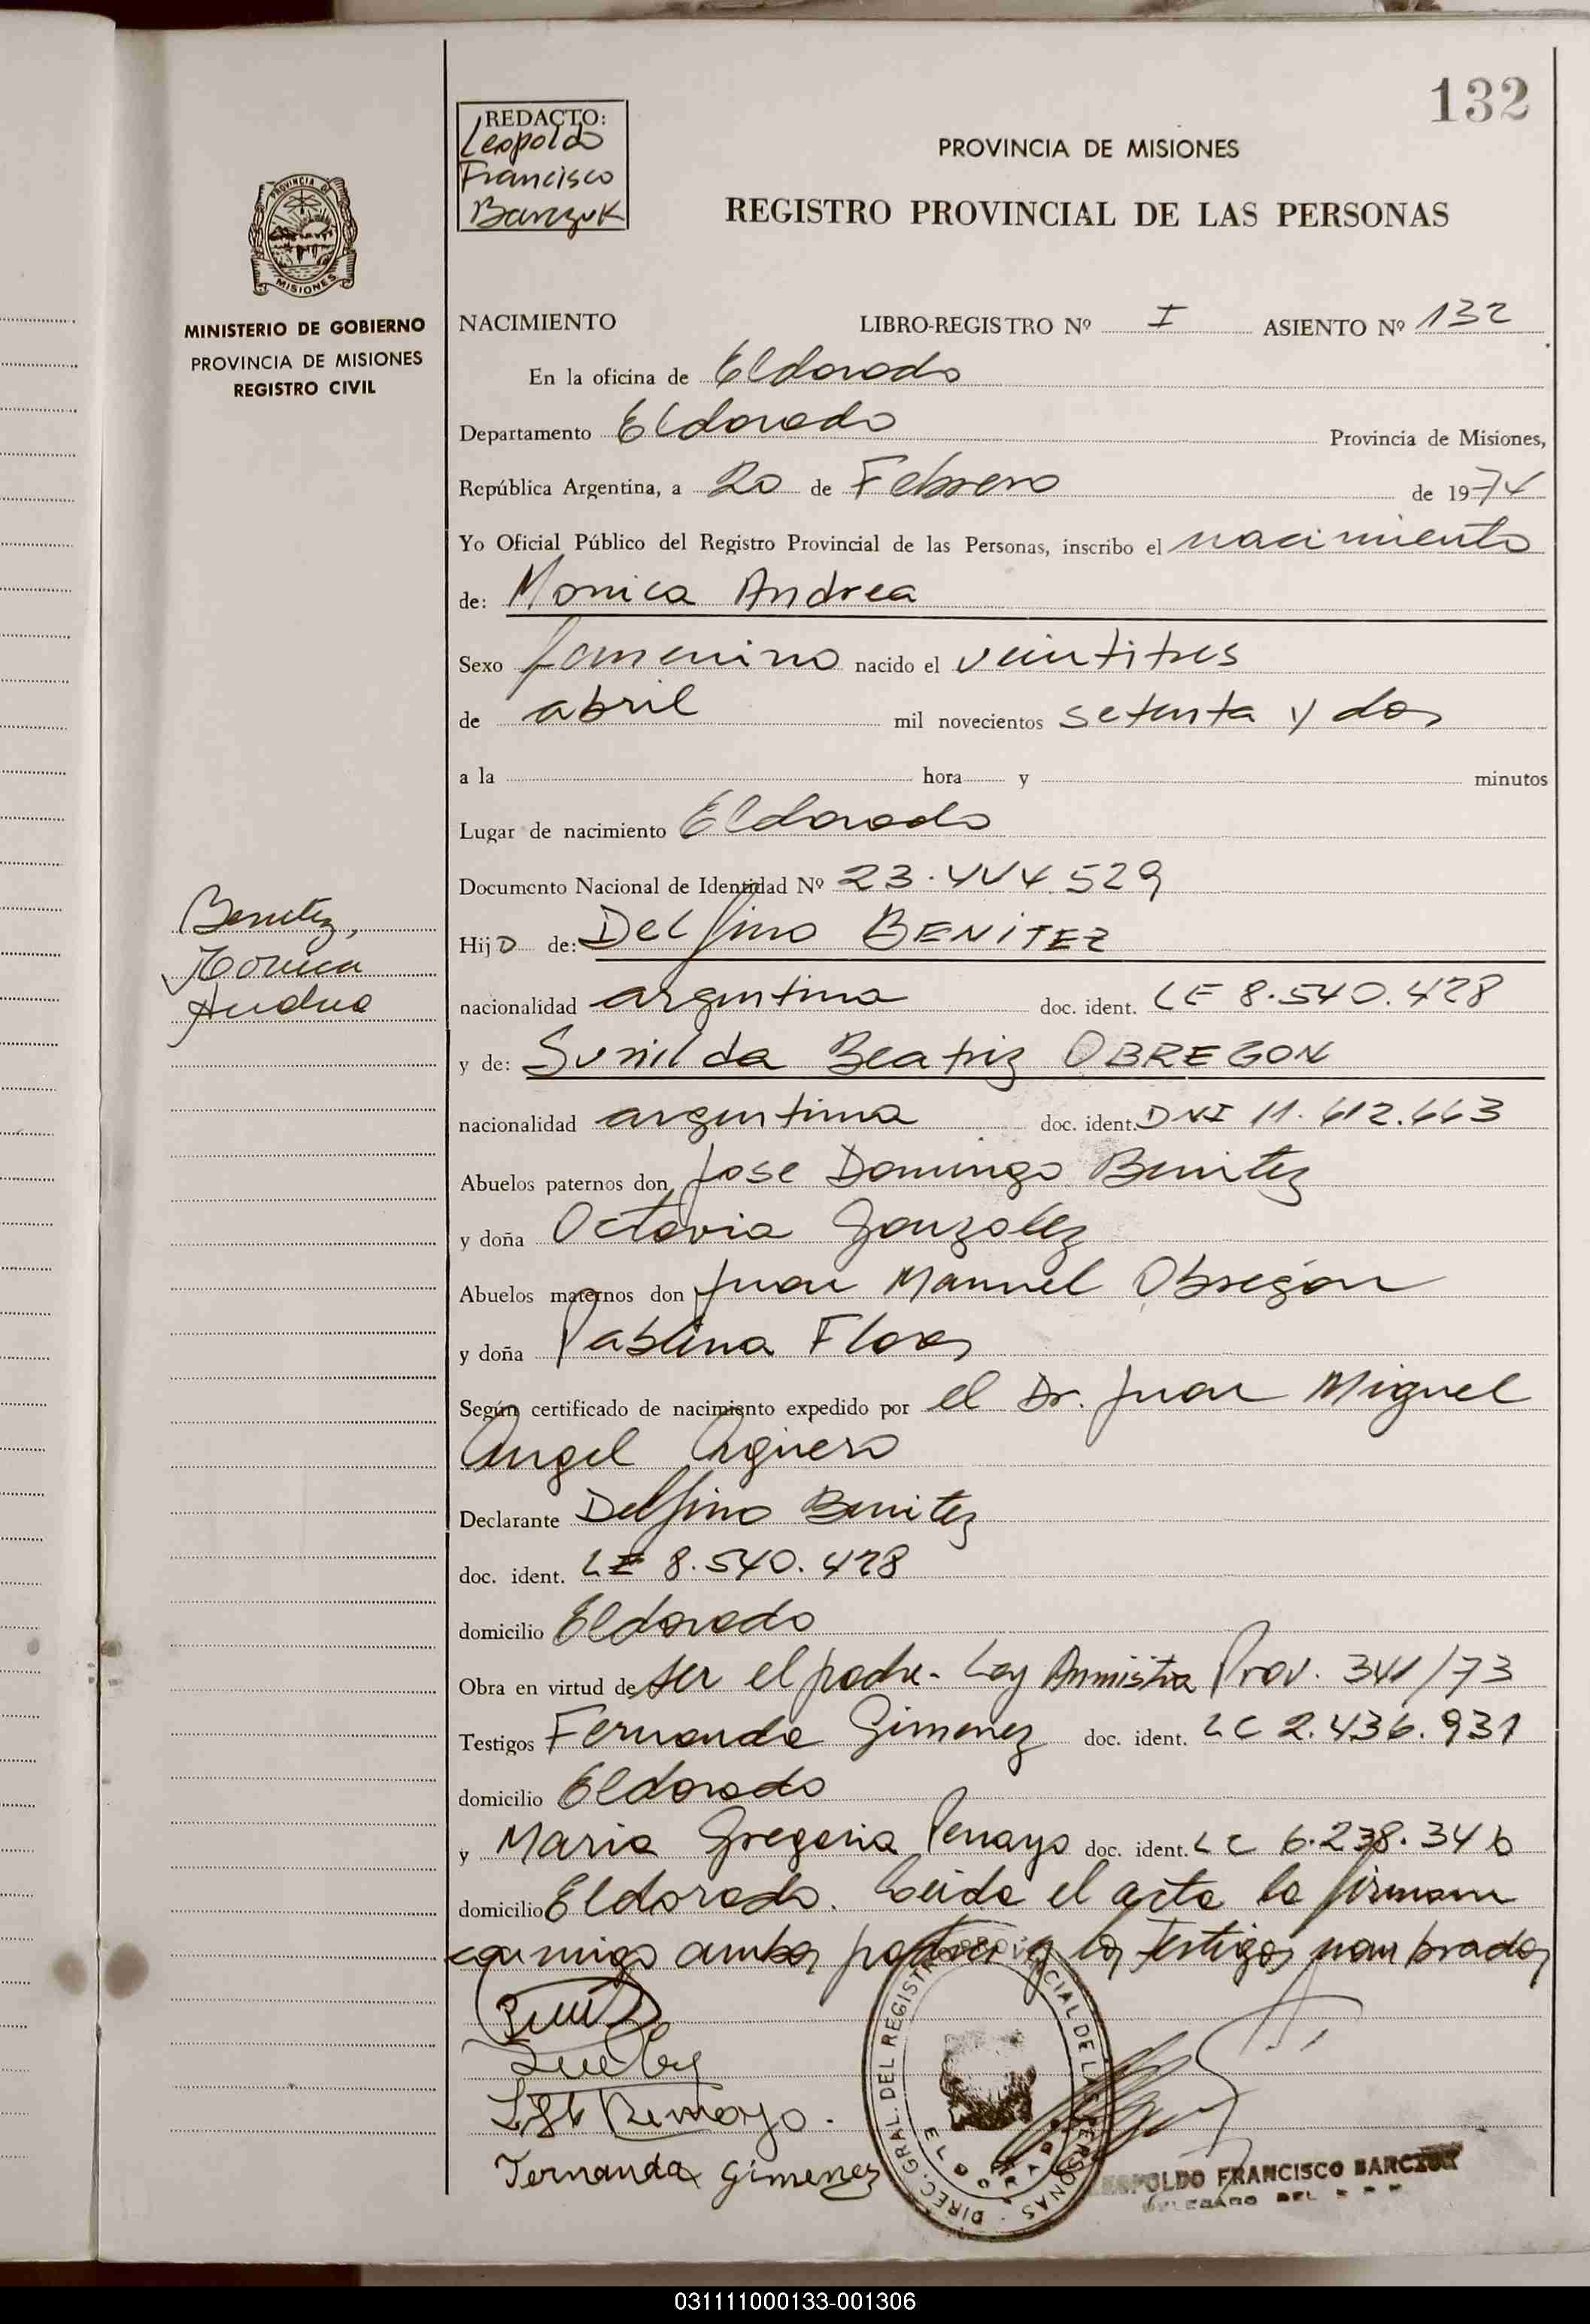 132
REDACTO:
Leopoldo
Francisco
Barczuk
PROVINCIA DE MISIONES
REGISTRO PROVINCIAL DE LAS PERSONAS
PROVINCIA DE
MISIONES
MINISTERIO DE GOBIERNO
PROVINCIA DE MISIONES
REGISTRO CIVIL
NACIMIENTO LIBRO-REGISTRO Nº I ASIENTO Nº 132
En la oficina de Eldorado
Departamento Eldorado Provincia de Misiones,
República Argentina, a 20 de Febrero de 1974
Yo Oficial Público del Registro Provincial de las Personas, inscribo el nacimiento
de: Monica Andrea
Sexo femenino nacido el veintitres
de abril mil novecientos setenta y dos
a la hora y minutos
Lugar de nacimiento Eldorado
Documento Nacional de Identidad Nº 23.444.529
Benitez,
Monica
Andrea
Hijo de: Delfino BENITEZ
nacionalidad argentina doc. ident. LE 8.540.478
y de: Sunilda Beatriz OBREGON
nacionalidad argentina doc. ident. DNI 11.612.663
Abuelos paternos don Jose Domingo Benitez
y doña Octavia Gonzalez
Abuelos maternos don Juan Manuel Obregón
y doña Pablina Flores
Según certificado de nacimiento expedido por el Dr. Juan Miguel
Angel Aguero
Declarante Delfino Benitez
doc. ident. LE 8.540.478
domicilio Eldorado
Obra en virtud de ser el padre- Ley Amnistia Prov. 341/73
Testigos Fernanda Gimenez doc. ident. LC 2.436.931
domicilio Eldorado
y Maria Gregoria Penayo doc. ident. LC 6.238.346
domicilio Eldorado. Leida el acta la firman
conmigo ambos padres y los testigos nombrados
Penayo.
Fernanda gimenez
DIREC. GRAL. DEL REGISTRO PROVINCIAL DE LAS PERSONAS
ELDORADO
LEOPOLDO FRANCISCO BARCZUK
DELEGADO DEL R P P
031111000133-001306